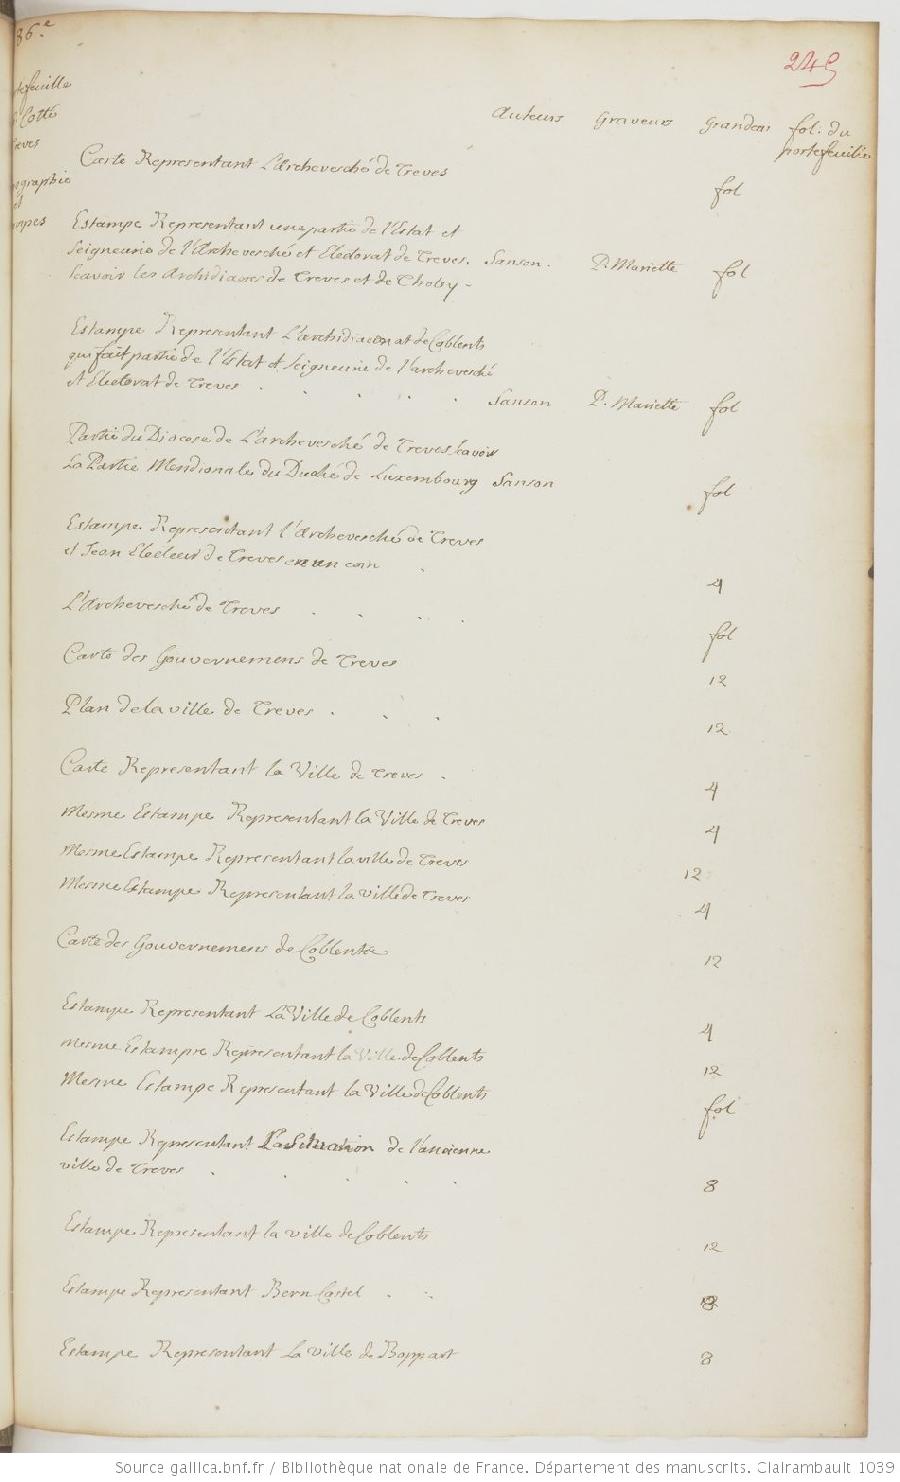 86.e
245
Auteurs Graveurs Grandeur fol. du
portefeuille
Carte Representant L'Archevesché de Treves
fol
Estampe Representant une partie de l'Estat et
Seigneurie de l'Archevesché et Electorat de Treves. Sanson. P. Mariette fol
scavoir les Archidiacres de Treves et de Tholey -
Estampe Representant L'archidiaconat de Coblents
qui fait partie de l'Estat et Seigneurie de l'archevesché
et Electorat de Treves . . . . . Sanson P. Mariette fol
Partie du Diocese de L'archevesché de Treves scavoir
La Partie Meridionale du Duché de Luxembourg Sanson
fol
Estampe Representant l'Archevesché de Treves
et Jean Electeur de Treves en un coin .
4
L'Archevesché de Treves . . . .
fol
Carte des Gouvernemens de Treves
12
Plan de la ville de Treves . . .
12
Carte Representant la Ville de Treves .
4
Mesme Estampe Representant la Ville de Treves
4
Mesme Estampe Representant la ville de Treves
12
Mesme Estampe Representant la Ville de Treves
4
Carte des Gouvernemens de Coblents
12
Estampe Representant La Ville de Coblents
4
Mesme Estampre Representant la Ville de Coblents
12
Mesme Estampe Representant la Ville de Coblents
fol
Estampe Representant La Situation de l'ancienne
ville de Treves . . . . .
8
Estampe Representant la ville de Coblents
12
Estampe Representant Bern Castel . ..
8
Estampe Representant La ville de Boppart
8
Source gallica.bnf.fr / Bibliothèque nationale de France. Département des manuscrits. Clairambault 1039